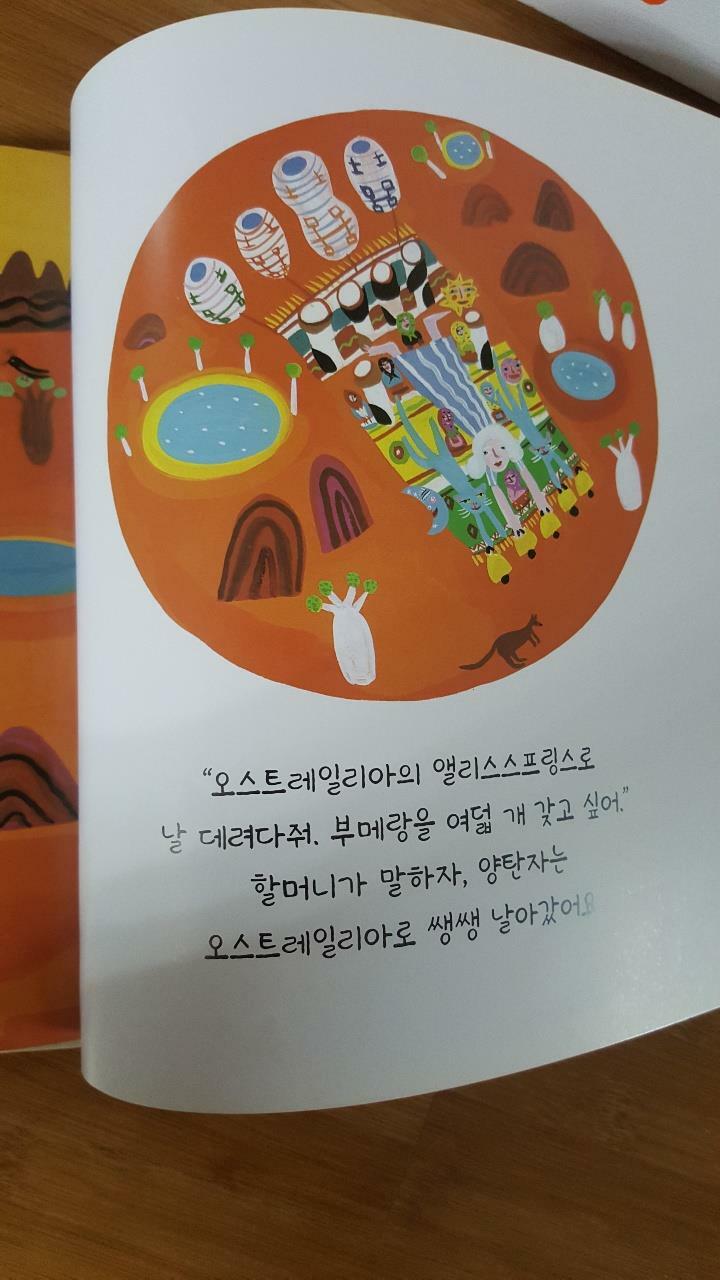 “오스트레일리아의 앨리스스프링스로
날 데려다줘. 부메랑을 여덟 개 갖고 싶어.”
할머니가 말하자, 양탄자는
오스트레일리아로 쌩쌩 날아갔어요